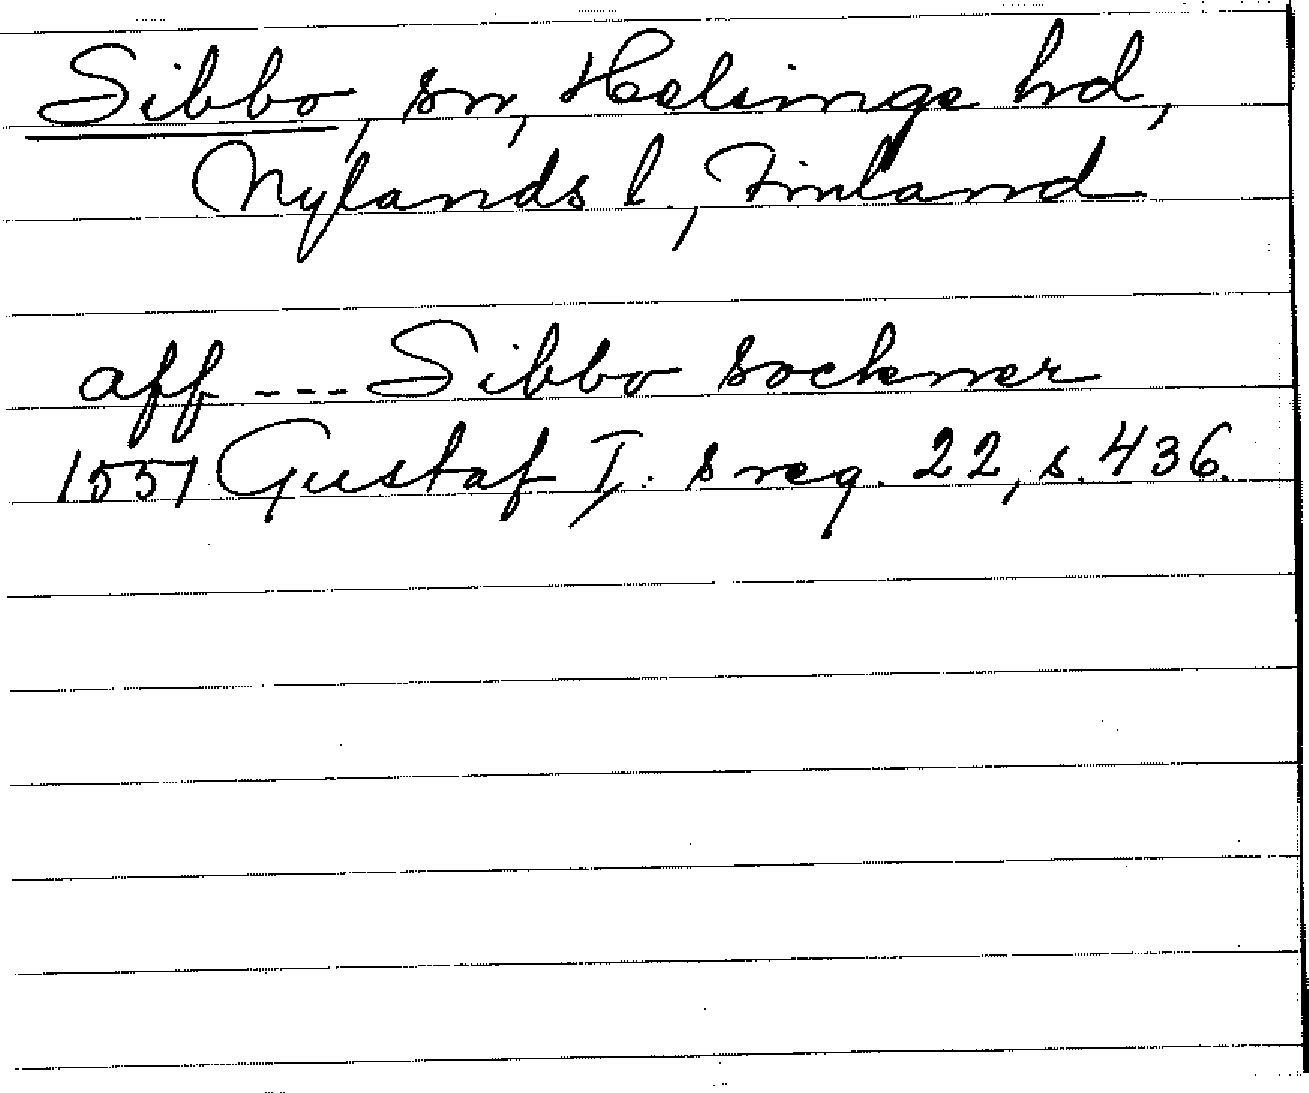 Sibbo, sn, Helsinge hd,
Nylands l., Finland
aff --- Sibbo sockner
1551 Gustaf I: s reg. 22, s. 436.